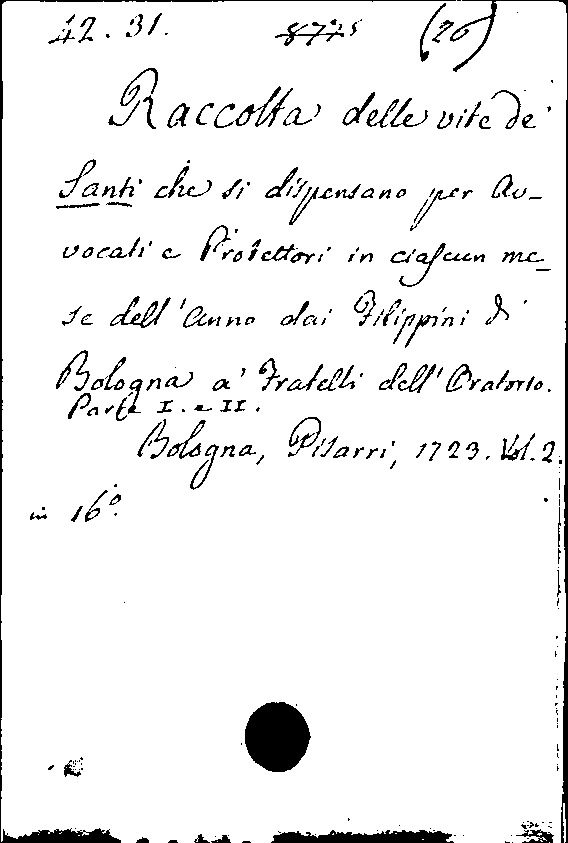 42. 31. 8775 (26)
Raccolta delle vite de'
Santi che si dispensano per Av-
vocati e Protettori in ciascun me-
se dell'Anno dai Filippini di
Bologna a' Fratelli dell'Oratorio.
Parte I. e II.
Bologna, Pisarri, 1723. Vol. 2.
in 16º.